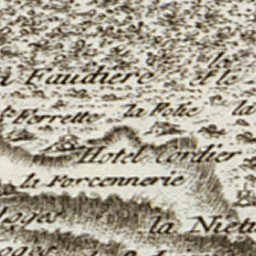 la
Faudiere
Fle
Ferrette la Folie la
Hotel Cordier
la Forcennerie
Loges
la Niett